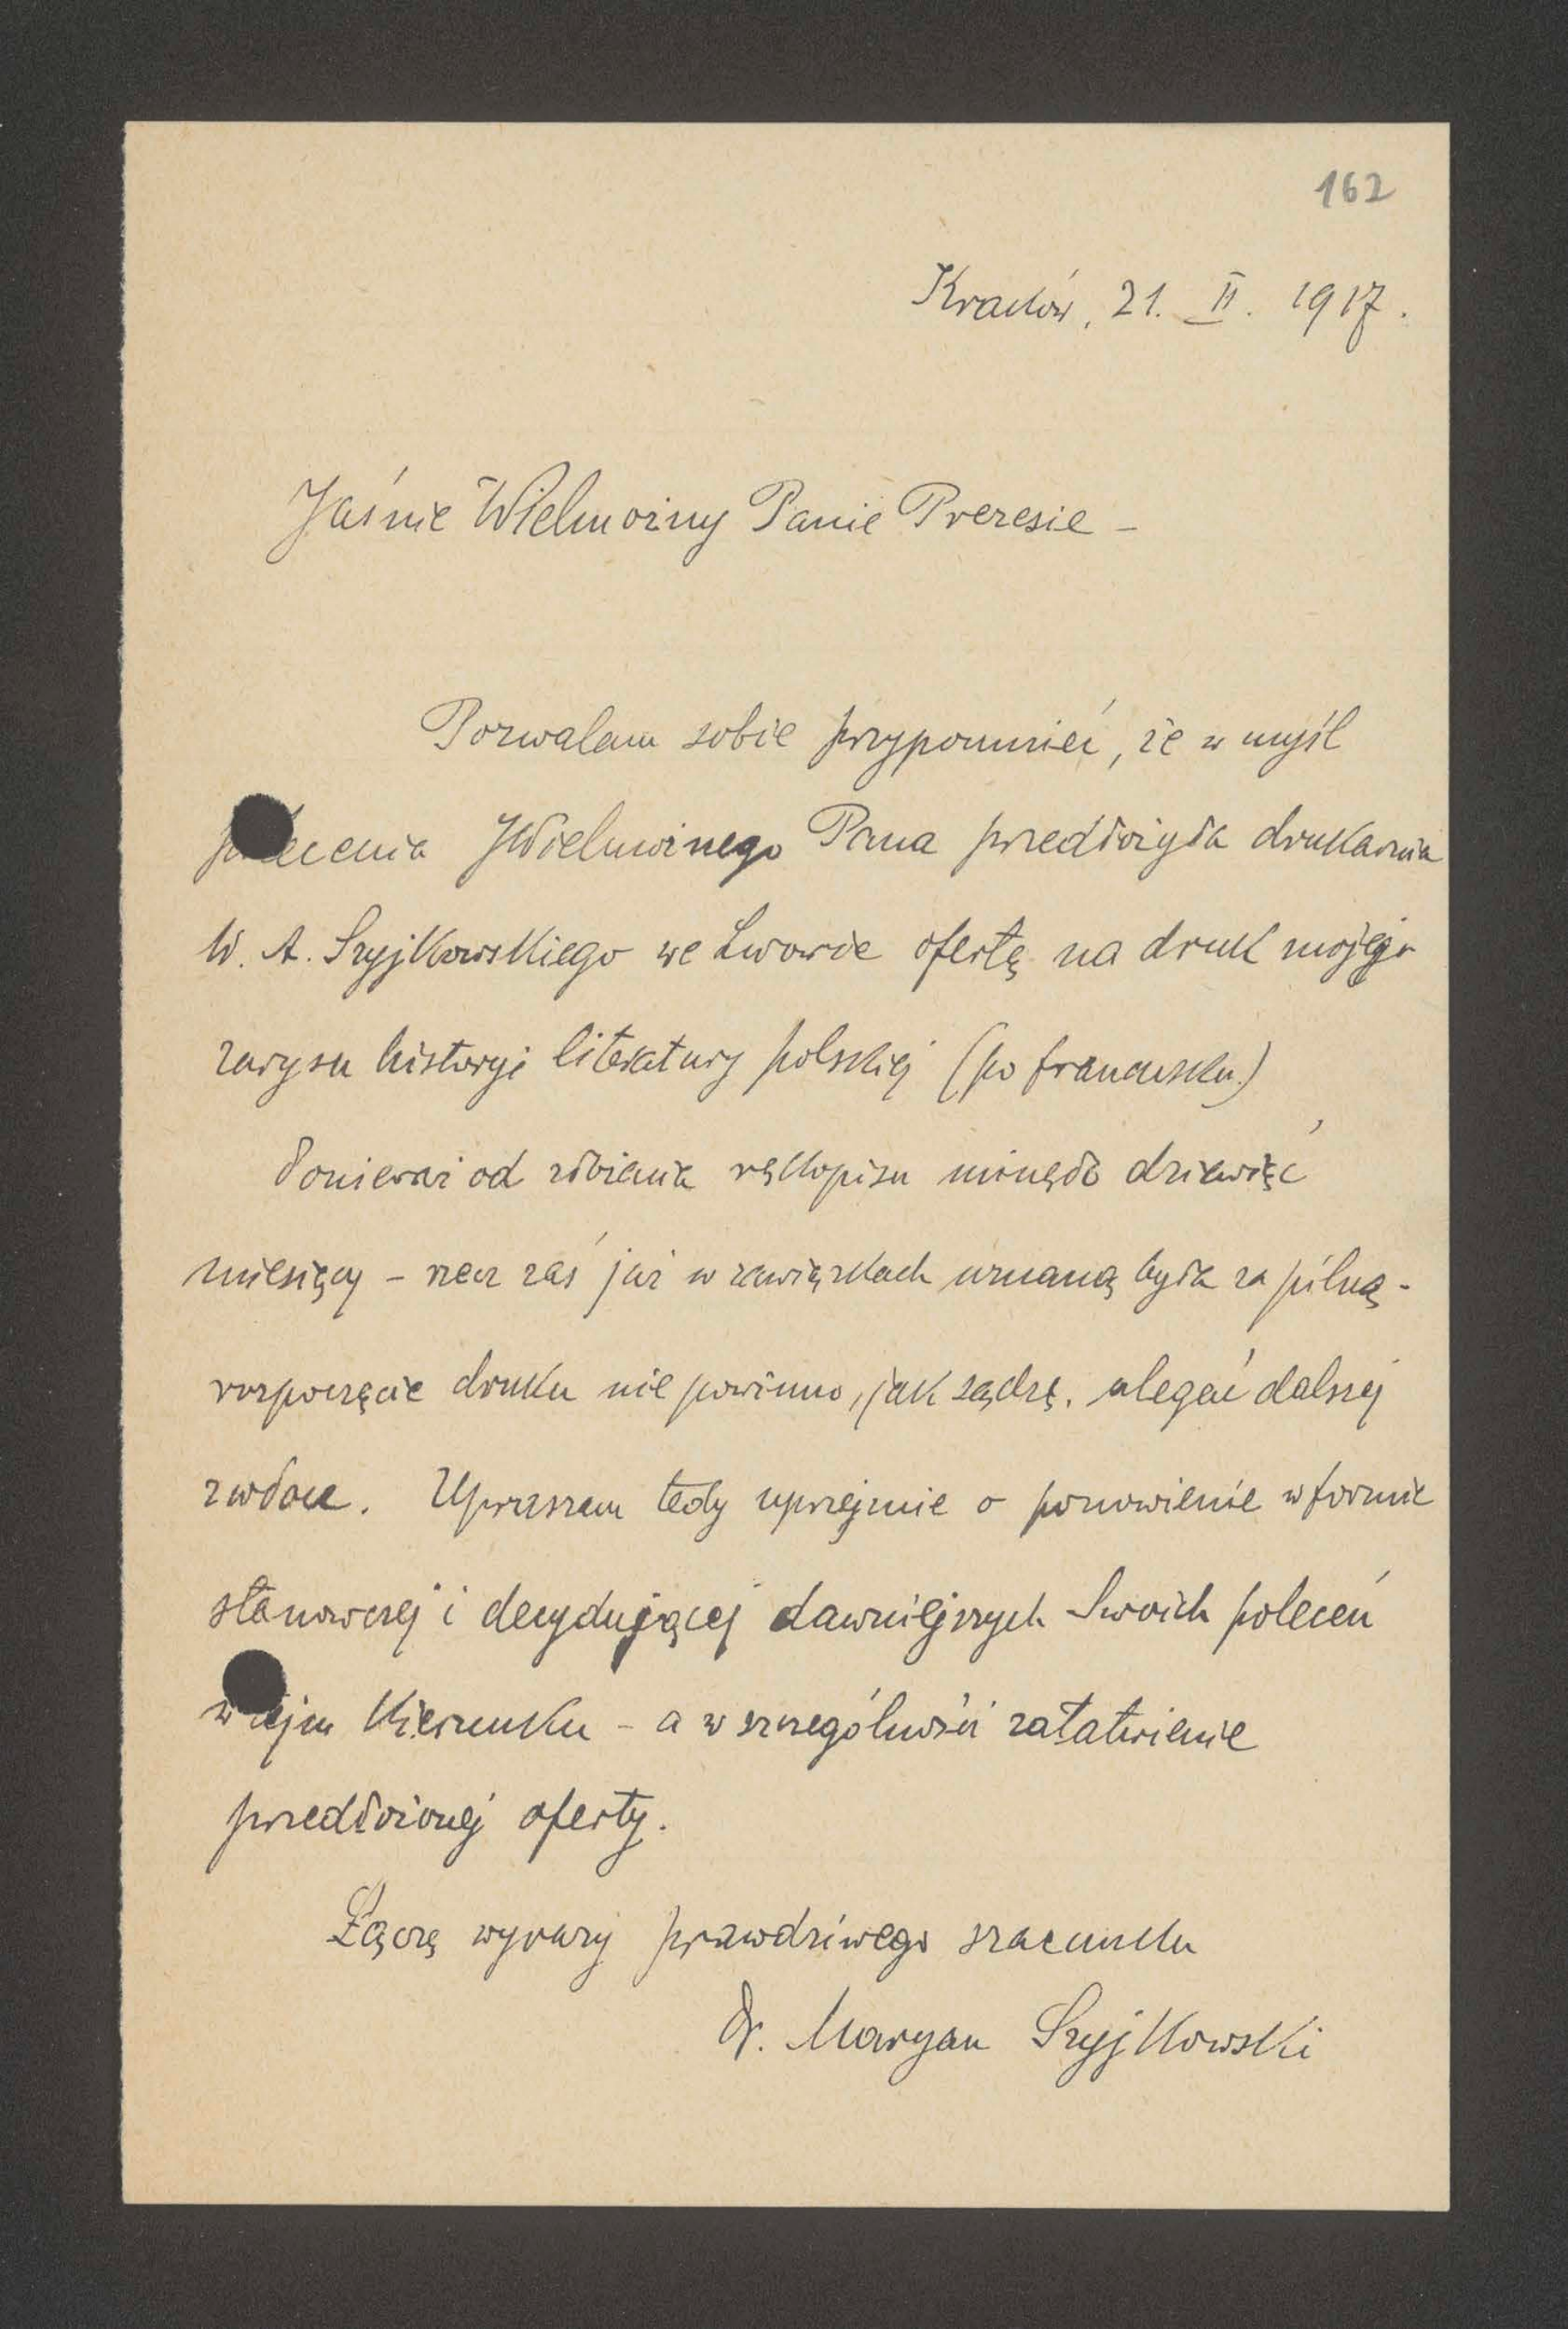 162
Kraków, 21. II. 1917.
Jaśnie Wielmożny Panie Prezesie –
Pozwalam sobie przypomnieć, że w myśl
polecenia JWielmożnego Pana przedłożyła drukarnia
W. A. Szyjkowskiego we Lwowie ofertę na druk mojego
zarysu historyi literatury polskiej (po francusku)
Ponieważ od zdbienia rękopisu minęło dziewięć
miesięcy – rzecz zaś już w zawiązkach uznaną była za pilną –
rozpoczęcie druku nie powinno, jak sądzę, ulegać dalszej
zwłoce. Upraszam tedy uprzejmie o ponowienie w formie
stanowczej i decydującej dawniejszych Swoich poleceń
w tejm kierunku – a w szczególności załatwienie
przedłożonej oferty.
Łączę wyrazy prawdziwego szacunku
Dr. Maryan Szyjkowski